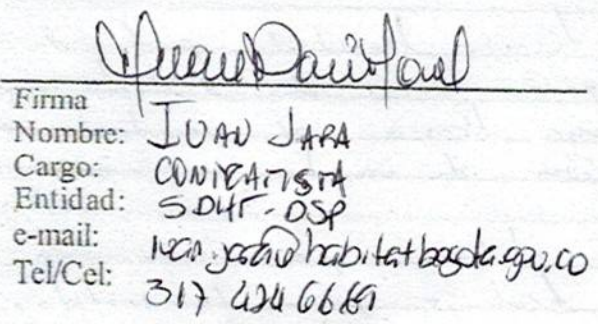 Firma
Nombre: IUAN JARA
Cargo: CONTRATISTA
Entidad: SDHT-OSP
e-mail: ivan.jara@habitatbogota.gov.co
Tel/Cel: 317